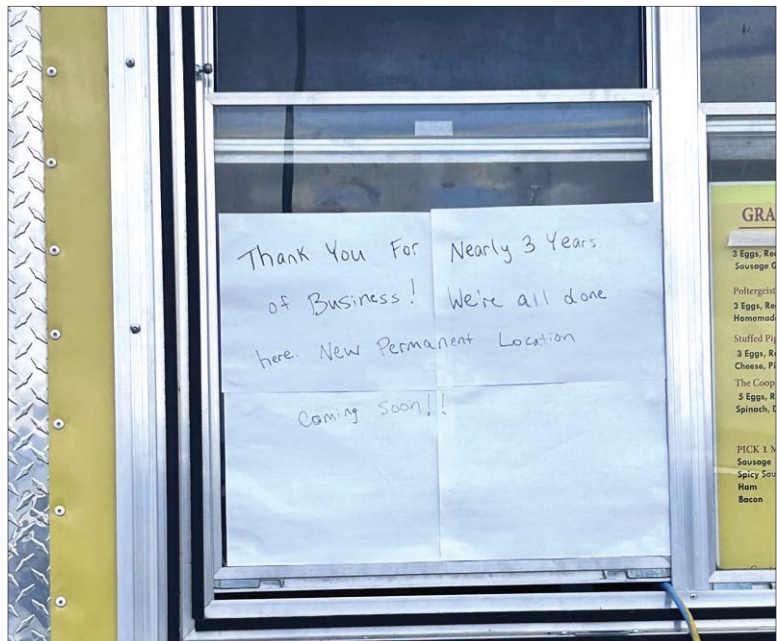 Thank You For Nearly 3 Years
of Business! We're all done
here. New Permanent Location
Coming Soon!!
GRA
3 Eggs, Re
Sausage G
Poltergeist
3 Eggs, Re
Homemad
Stuffed Pi
3 Eggs, R
Cheese, Pi
The Coop
5 Eggs, R
Spinach,
PICK 1
Sausage
Spicy Sau
Ham
Bacon